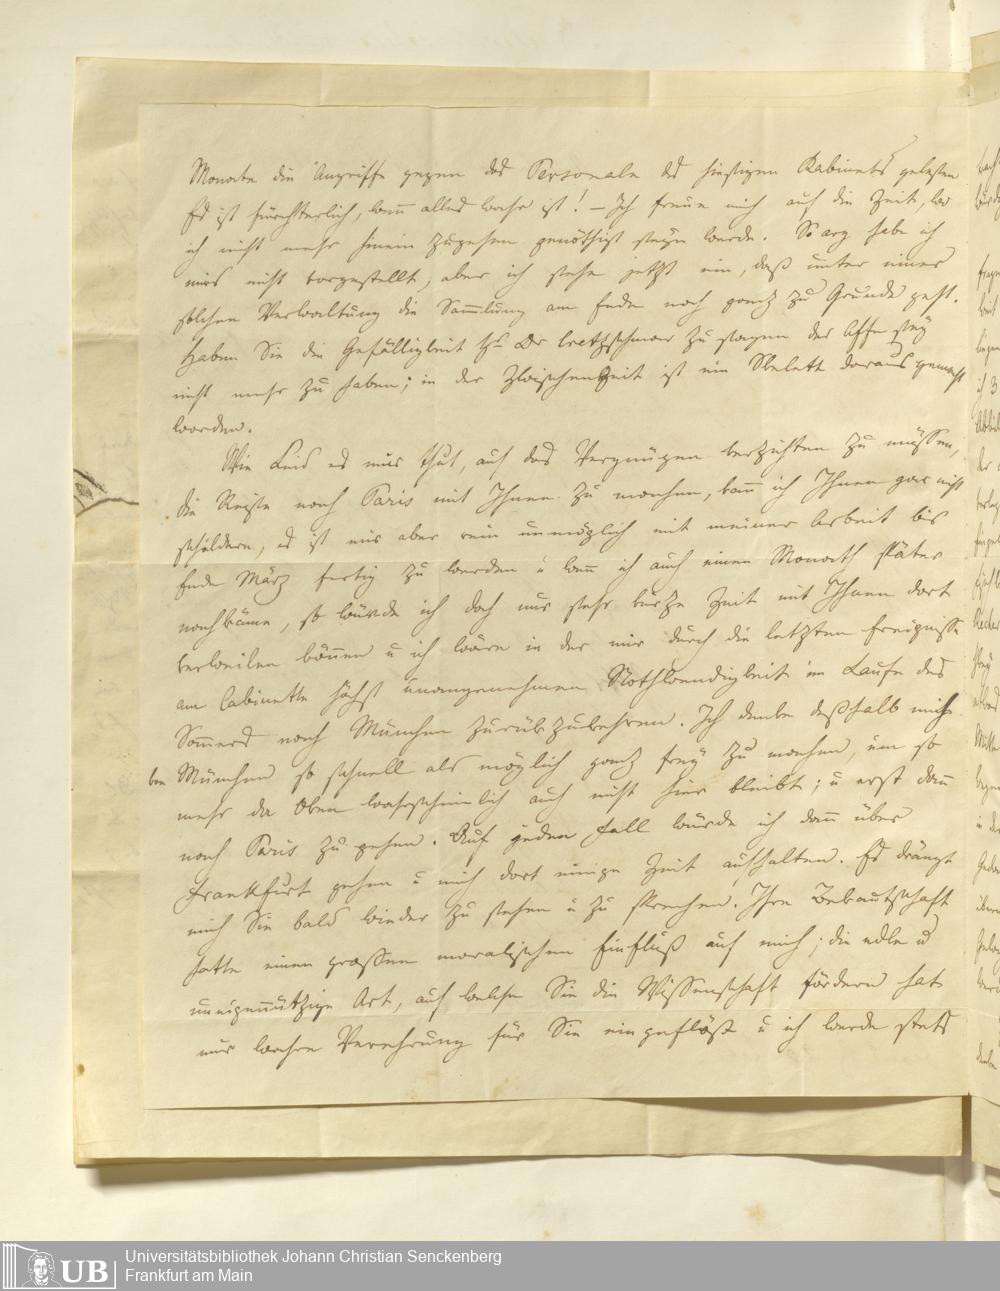 Monate die Angriffe gegen das Personale des hiesigen Kabinets gelesen
Es ist fürchterlich, wenn alles wahr ist! – Ich freue mich auf die Zeit, wo
ich nicht mehr hinein zugehen genöthigt seyn werde. So arg habe ich
mirs nicht vorgestellt, aber ich sehe jetzt ein, daß unter einer
solchen Verwaltung die Sammlung am Ende noch ganz zu Grunde geht.
Haben Sie die Gefälligkeit Dr Cretzschmar zu sagen der Affe sey
nicht mehr zu haben; in der Zwischenzeit ist ein Skelett daraus gemacht
worden.
Wie Leid es mir thut, auf das Vergnügen verzichten zu müssen,
die Reise nach Paris mit Ihnen zu machen, kann ich Ihnen gar nicht
schildern, es ist mir aber rein unmöglich mit meiner Arbeit bis
Ende März fertig zu werden u wenn ich auch einen Monath später
nachkäme, so würde ich doch nur sehr kurze Zeit mit Ihnen dort
verweilen können u ich wäre in der mir durch die letzten Ereignisse
am Cabinette höchst unangenehmen Nothwendigkeit im Laufe des
Sommers nach München zurükzukehren. Ich denke deßhalb mich
von München so schnell als möglich ganz frey zu machen, um so
mehr da Oken wahrscheinlich auch nicht hier bleibt; u erst dann
nach Paris zu gehen. Auf jeden Fall würde ich dann über
Frankfurt gehen u mich dort einige Zeit aufhalten. Es drängt
mich Sie bald wieder zu sehen u zu sprechen. Ihre Bekantschaft
hatte einen grossen moralischen Einfluß auf mich; die edle u
uneigennützige Art, auf welche Sie die Wissenschaft fördern hat
mir wahre Verehrung für Sie eingeflößt u ich werde stets
UB
Universitätsbibliothek Johann Christian Senckenberg
Frankfurt am Main